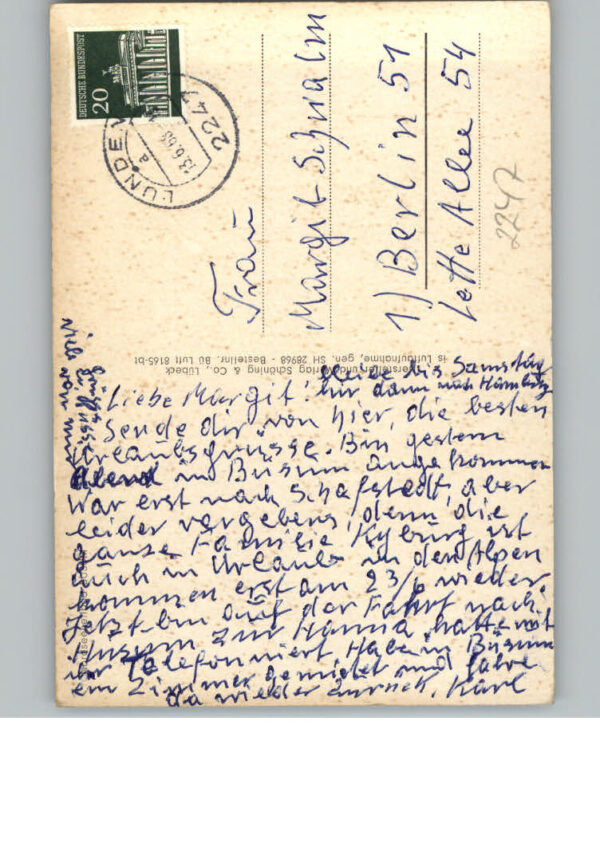 DEUTSCHE BUNDESPOST
20
LUNDEN
2247
13.6.68
a
Frau
Margit Schwalm
1) Berlin 51
Lette Allee 54
2247
Hersteller und Verlag Schöning & Co., Lübeck
is Luftaufnahme, gen. SH 28968 - Bestellnr. Bü Luft 8165-bt
bleibe bis Samstag
hir dann nach Hamburg
Liebe Margit!
Sende dir von hier, die besten
Urlaubsgrüsse. Bin gestern
Abend in Büsum angekommen
War erst nach Schafstedt, aber
leider vergebens, denn die
ganze Familie Kyburg ist
auch in Urlaub in den Alpen
kommen erst am 23/6 wieder.
Jetzt bin auf der Fahrt nach
Husum zur Hanna, hatte mit
ihr Telefoniert Habe in Büsum
ein Zimmer gemietet und fahre
da wieder zurück, Karl
viele
von mir